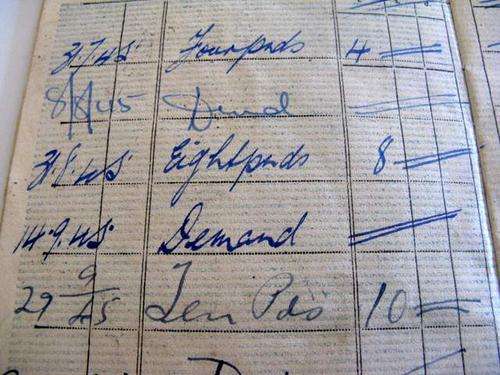 31.7.45. Fourpnds 4
8/8/45 Dmd
31.8.45 Eightpnds 8
14.9.45. Demand
29 9/45 Ten Pds 10